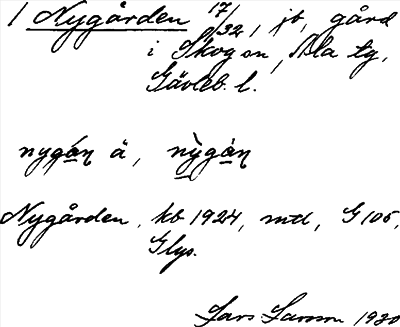 1 Nygården 17/32, jb, gård
i Skog sn, Ala tg,
Gävleb. l.
nygán ä, nỳgàn
Nygården, kb 1924, mtl, G 105,
Glys.
Lars Larsson 1930